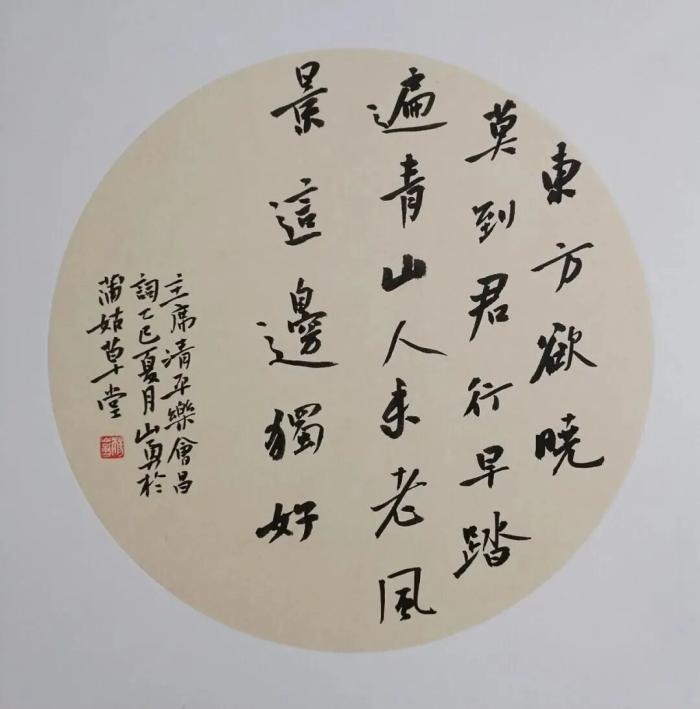 東方欲晓
莫到君行早踏
遍青山人未老風
景這邊獨好
主席清平樂會昌
詞乙巳夏月山勇於
蒲姑草堂